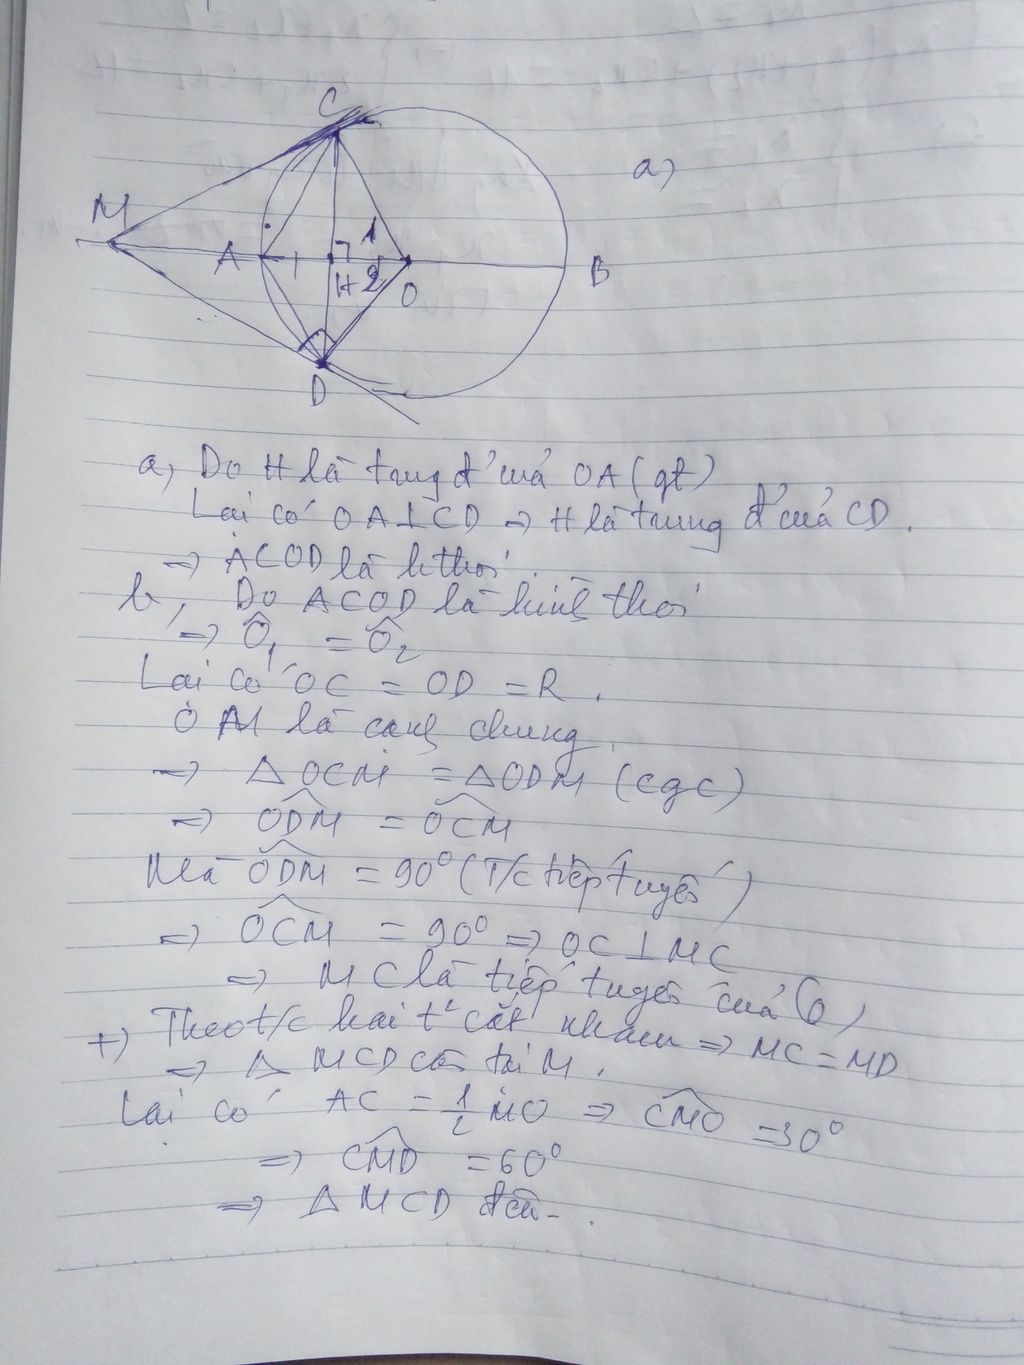 C
a)
M
A
1
H
2
O
B
D
a, Do H là trung đ' của OA (gt)
Lại có OA⊥CD => H là trung đ' của CD.
=> ACOD là hthoi.
b, Do ACOD là hình thoi
=> Ô₁ = Ô₂
Lại có OC = OD = R.
OM là cạnh chung.
=> △OCM = △ODM (cgc)
=> \widehat{ODM} = \widehat{OCM}
Mà \widehat{ODM} = 90° (T/c tiếp tuyến)
=> \widehat{OCM} = 90° => OC⊥MC
=> MC là tiếp tuyến của (O)
+) Theo t/c hai t² cắt nhau => MC = MD
=> △ MCD cân tại M.
Lại có AC = 1/2 MO => \widehat{CMO} = 30°
=> \widehat{CMD} = 60°
=> △ MCD đều.